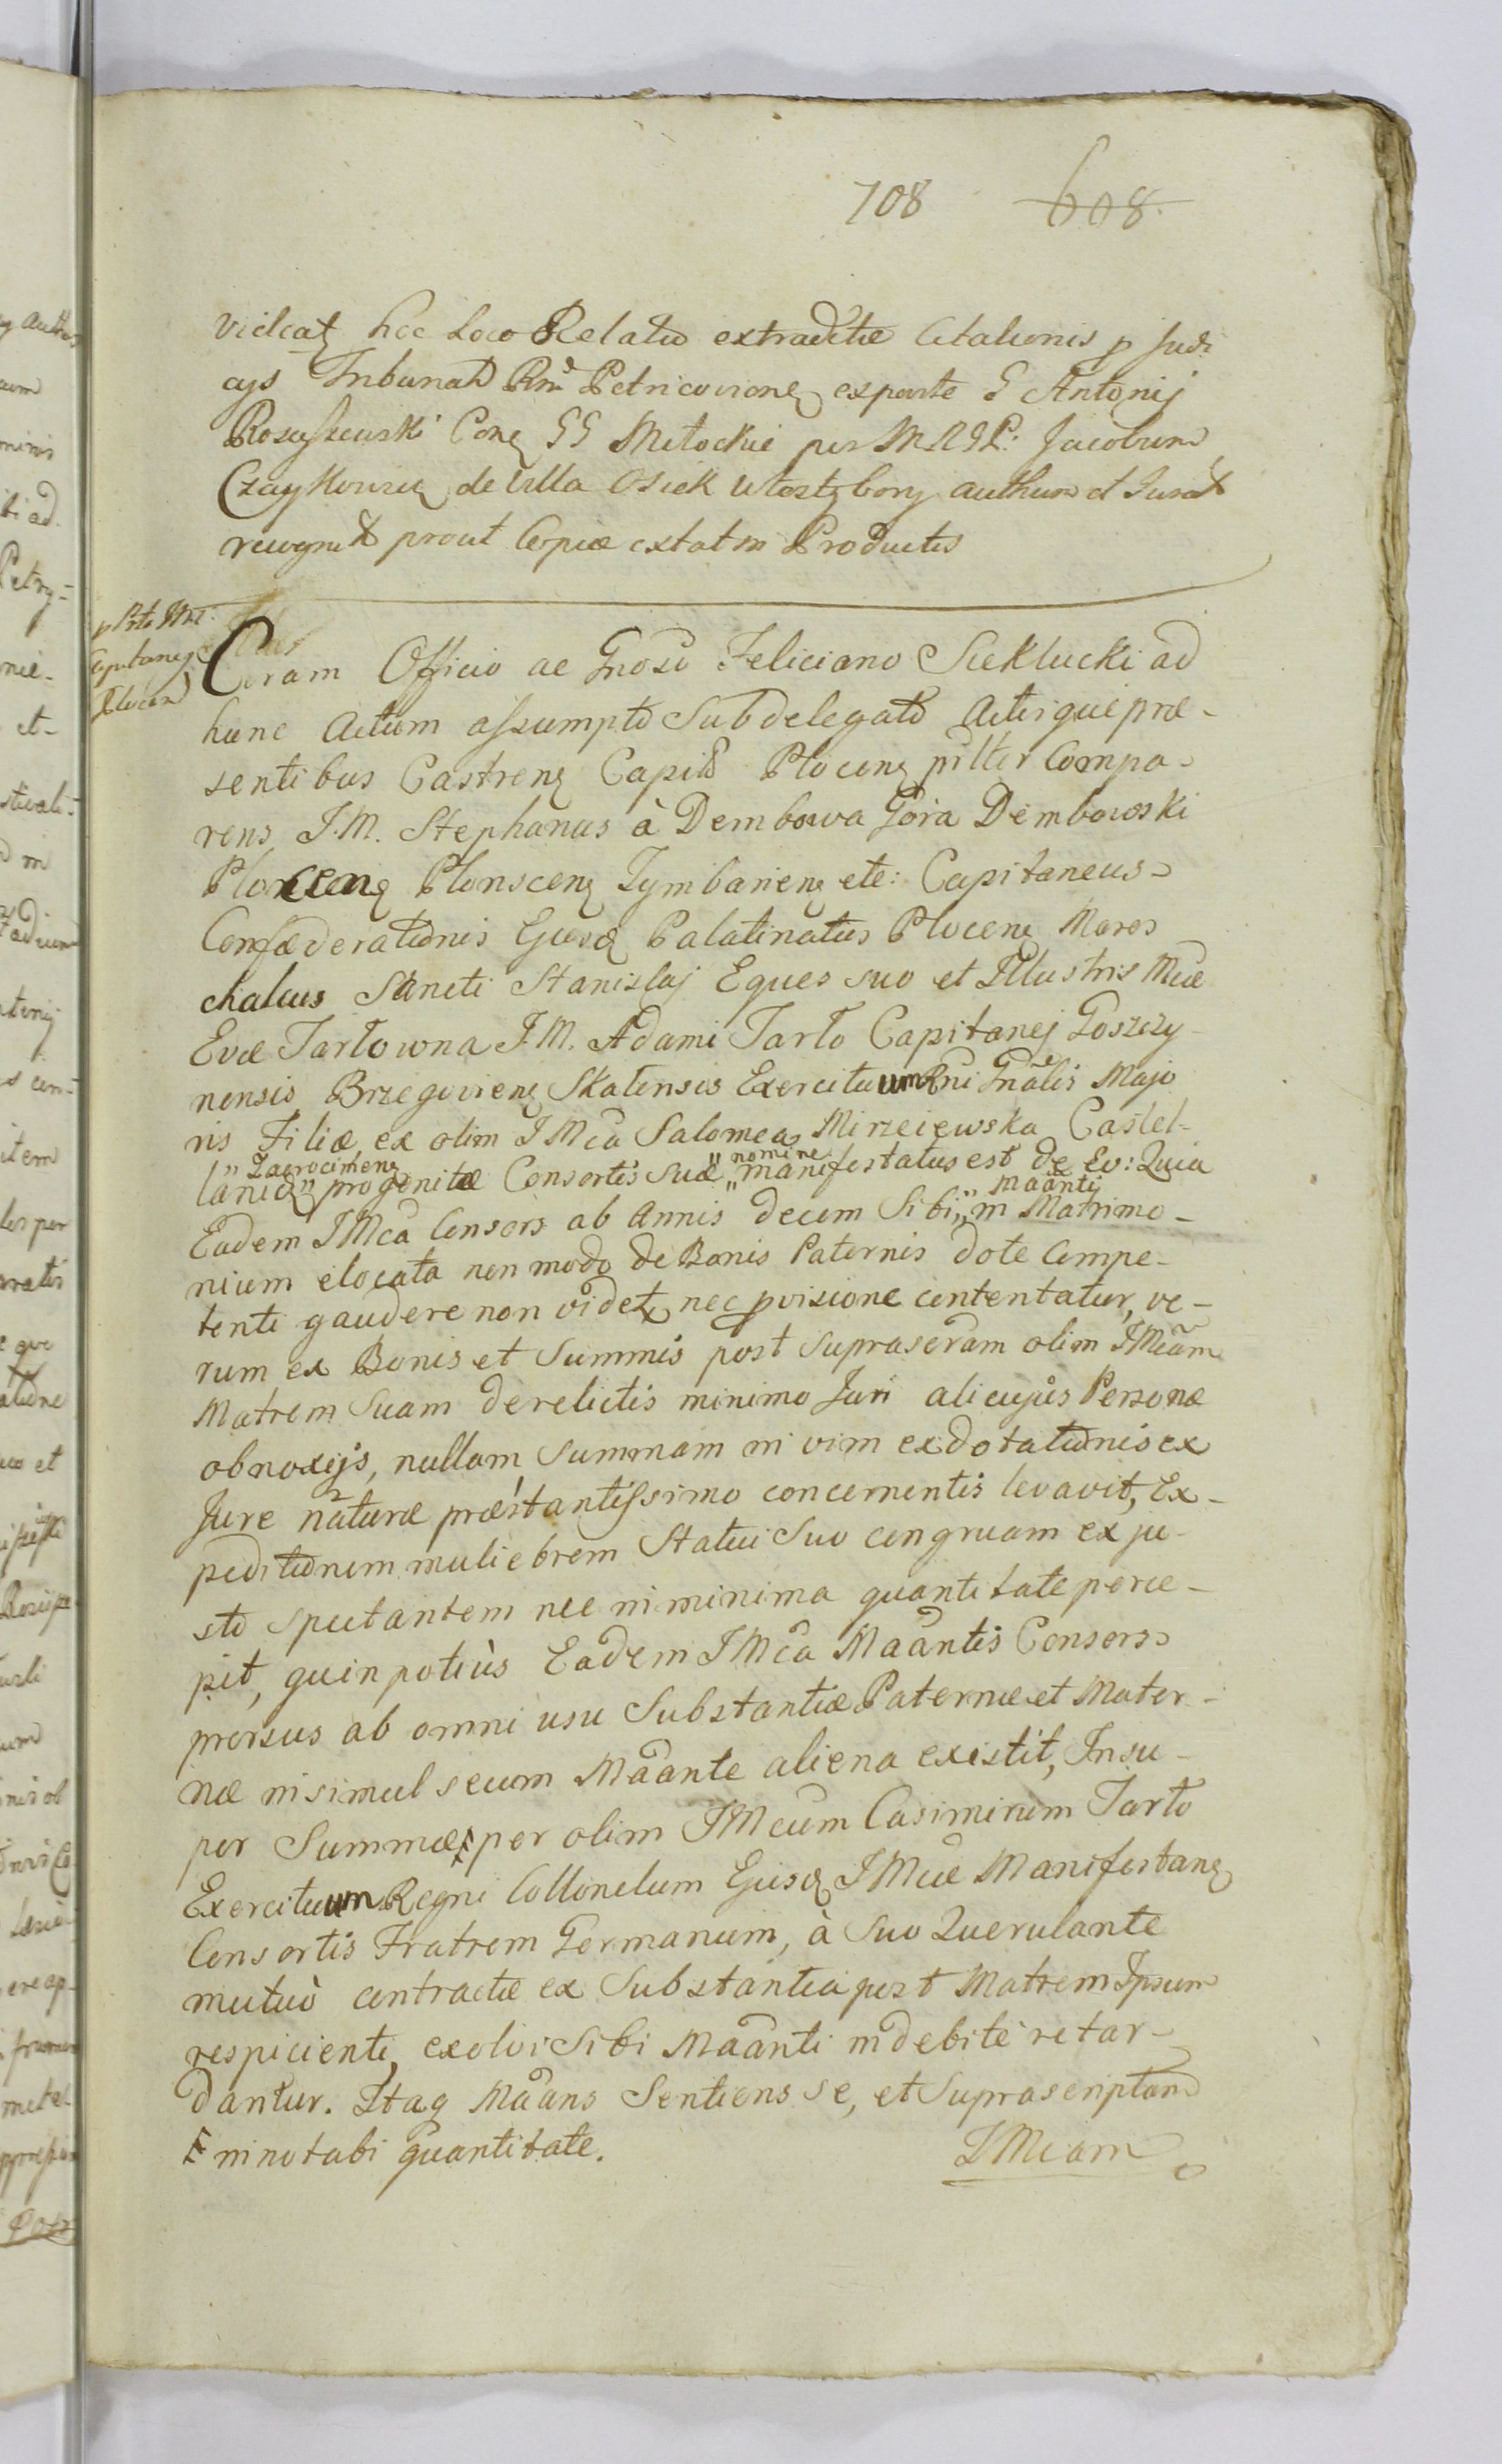 708 608.
videat hoc Loco Relatio extraditae Citationis p Judi
cys Tribunal Rni Petricovien exparte G Antonij
Roscissewski Con GG Mlockie per MRGP: Jacobum
de Villa Osiek Wlostybory authum et Jurat
recognit prout Copia extat in Productis
p Pte Mci
Capitanej
Plocen
Coram Officio ac Gnoso Feliciano Sieklucki ad
hunc Actum assumpto Subdelegato Actisque prae-
sentibus Castren Capit Plocen psltter Compa-
rens J.M. Stephanus à Dembowa Gora Dembowski
Plocen Plonscen Tymbarien etc: Capitaneus
Confaederationis Ejusd Palatinatus Plocen Mares
chalcus Sancti Stanislaj Eques suo et Illustris Mcae
Evae Tarlowna J.M. Adami Tarlo Capitanej Goszczy-
nensis Brzegovien Skalensis Exercituum Rni Gnalis Majo
ris Filiae ex olim JMca Salomea Mirzeiewska Castel-
" Zacrocimen " nomine
lanid " progenitae Consortis suae " manifestatus est de Eo: Quia
" Maanti
Eadem JMca Consors ab Annis decem Sibi " in Matrimo-
nium elocata non modo de Bonis Paternis dote Compe-
tenti gaudere non videt, nec pvisione contentatur, ve-
rum ex Bonis et Summis post Suprascram olim JMcam
Matrem Suam derelictis minimo Juri alicujus Personae
obnoxijs, nullam Summam in vim exdotationis ex
Jure naturae praestantissimo concernentis levavit, Ex-
peditionem muliebrem Statui Suo congruam ex ju-
sto spectantem nec in minima quantitate perce-
pit, quin potiùs Eadem JMca Maantis Consors
prorsus ab omni usu Substantiae Paternae et Mater-
nae insimul secum Maante aliena existit, Insu-
per Summae ₤ per olim JMcum Casimirum Tarlo
Exercituum Regni Collonelum Ejusd JMcae Manifestan
Consortis Fratrem Germanum, à Suo Querulante
mutuò contractae ex Substantia post Matrem Ipsum
respicienti, exolvi Sibi Maanti indebitè retar-
dantur. Itaq Maans Sentiens se, et Suprascriptam
₤ in notabi quantitate. JMcam